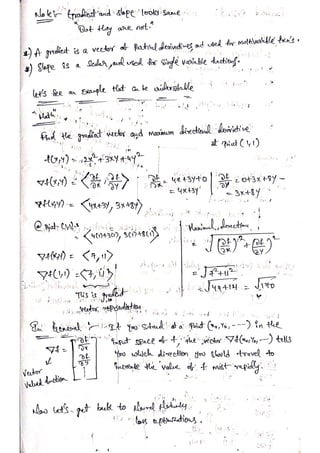 Note:- Gradient and slope looks same
"But they are not."
1) A gradient is a vector of Partial derivatives, and used for multivariable func's.
2) Slope is a Scalar, and used for Single variable functions.
Let's See an Example that can be
"Math"
Find the gradient vector and maximum directional derivative
at Point (1,1)
f(x,y) = 2x² + 3xy + 4y²
∇f(x,y) = <∂f/∂x, ∂f/∂y>
∂f/∂x = 4x+3y+0
= 4x+3y
∂f/∂y = 0+3x+8y
= 3x+8y
∇f(x,y) = <4x+3y, 3x+8y>
@ Point (1,1)
= <4(1)+3(1), 3(1)+8(1)>
∇f(x,y) = <7, 11>
∇f(1,1) = <7, 11>
This is gradient
vector representation
Maximal direction
= √((∂f/∂x)² + (∂f/∂y)²)
= √(7²+11²)
= √(49+121) = √170
In General :- If you stand at a point (x₀,y₀,---) in the
input space of f, the vector ∇f(x₀,y₀,---) tells
you which direction you should travel to
increase the value of f most rapidly.
∇f = [∂f/∂x ∂f/∂y]
Vector
Valued function
Now let's get back to Neural Networks
loss optimizations.